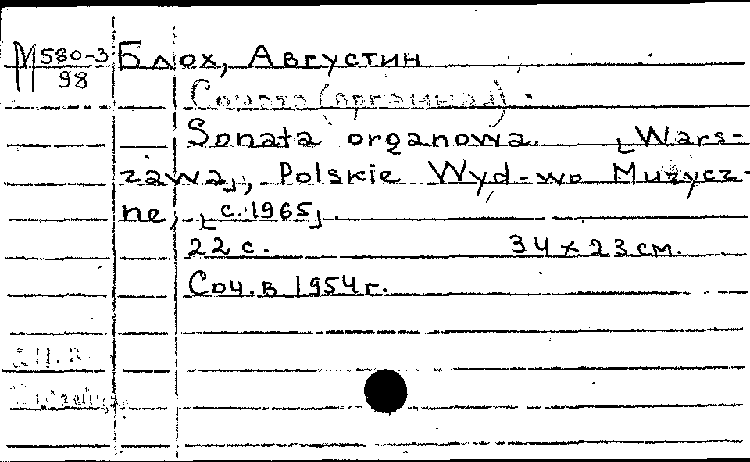 М 580-3
98
Блох, Августин
Соната (органная).
Sonata organowa. [Wars-
zawa], Polskie Wyd-wo Muzycz-
ne, [c. 1965].
22 с. 34 x 23 см.
Соч. в 1954 г.